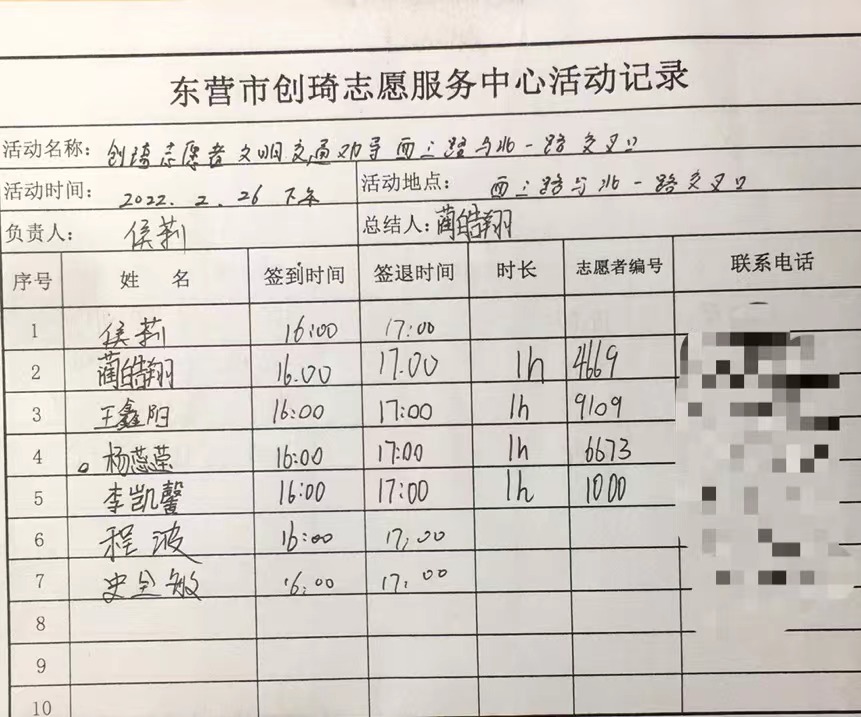 东营市创琦志愿服务中心活动记录
活动名称：创琦志愿者文明交通劝导西二路与北一路交叉口
活动时间：2022.2.26 下午 活动地点：西二路与北一路交叉口
负责人：侯莉 总结人：蔺皓翔
序号 姓名 签到时间 签退时间 时长 志愿者编号 联系电话
1 侯莉 16:00 17:00
2 蔺皓翔 16.00 17.00 1h 4669
3 王鑫阳 16:00 17:00 1h 9109
4 杨蕊荣 16:00 17:00 1h 6673
5 李凯馨 16:00 17:00 1h 1000
6 程波 16:00 17:00
7 史全敏 16:00 17:00
8
9
10